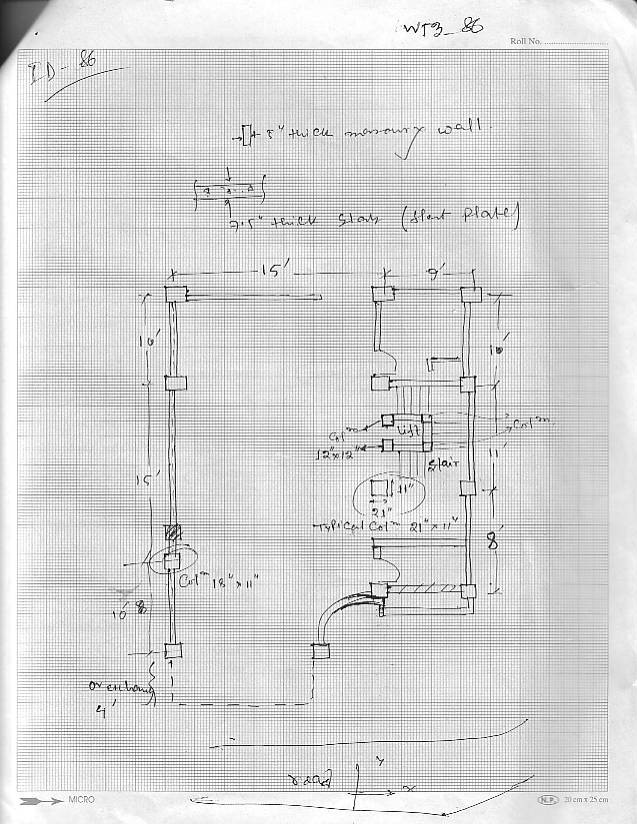 WT3_86
Roll No.
ID - 86
5" thick masonry wall.
7.5" thick slab (flat plate)
15' 9'
10' 10'
Lift
Col^m Col^m
12"x12"
Stair
11'
15'
11"
21"
Typical Col^m 21"x11"
8'
Col^m 18"x11"
10' 8
overhang
4'
road
y
x
MICRO
N.P. 20 cm x 25 cm